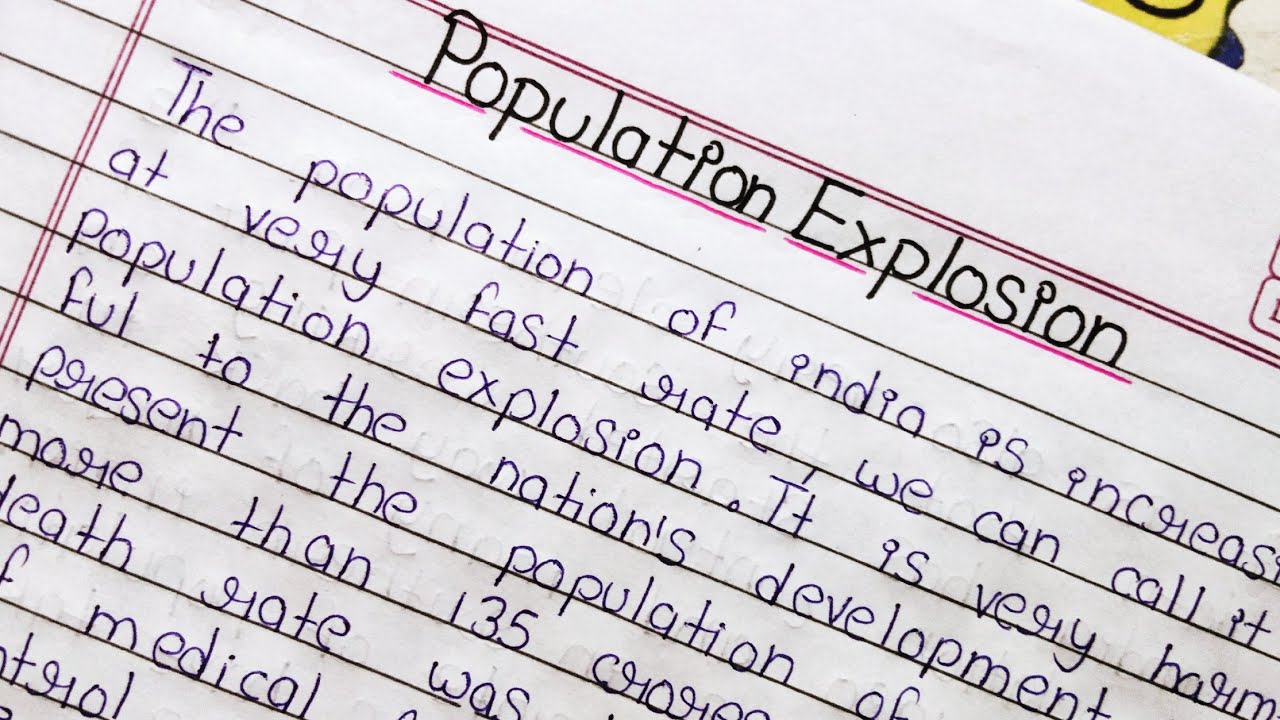 Population Explosion
The population of india is increasi
at very fast rate, we can call it
population explosion. It is very harm
ful to the nation's development
present the population of
more than 135 crores
death rate was
medical